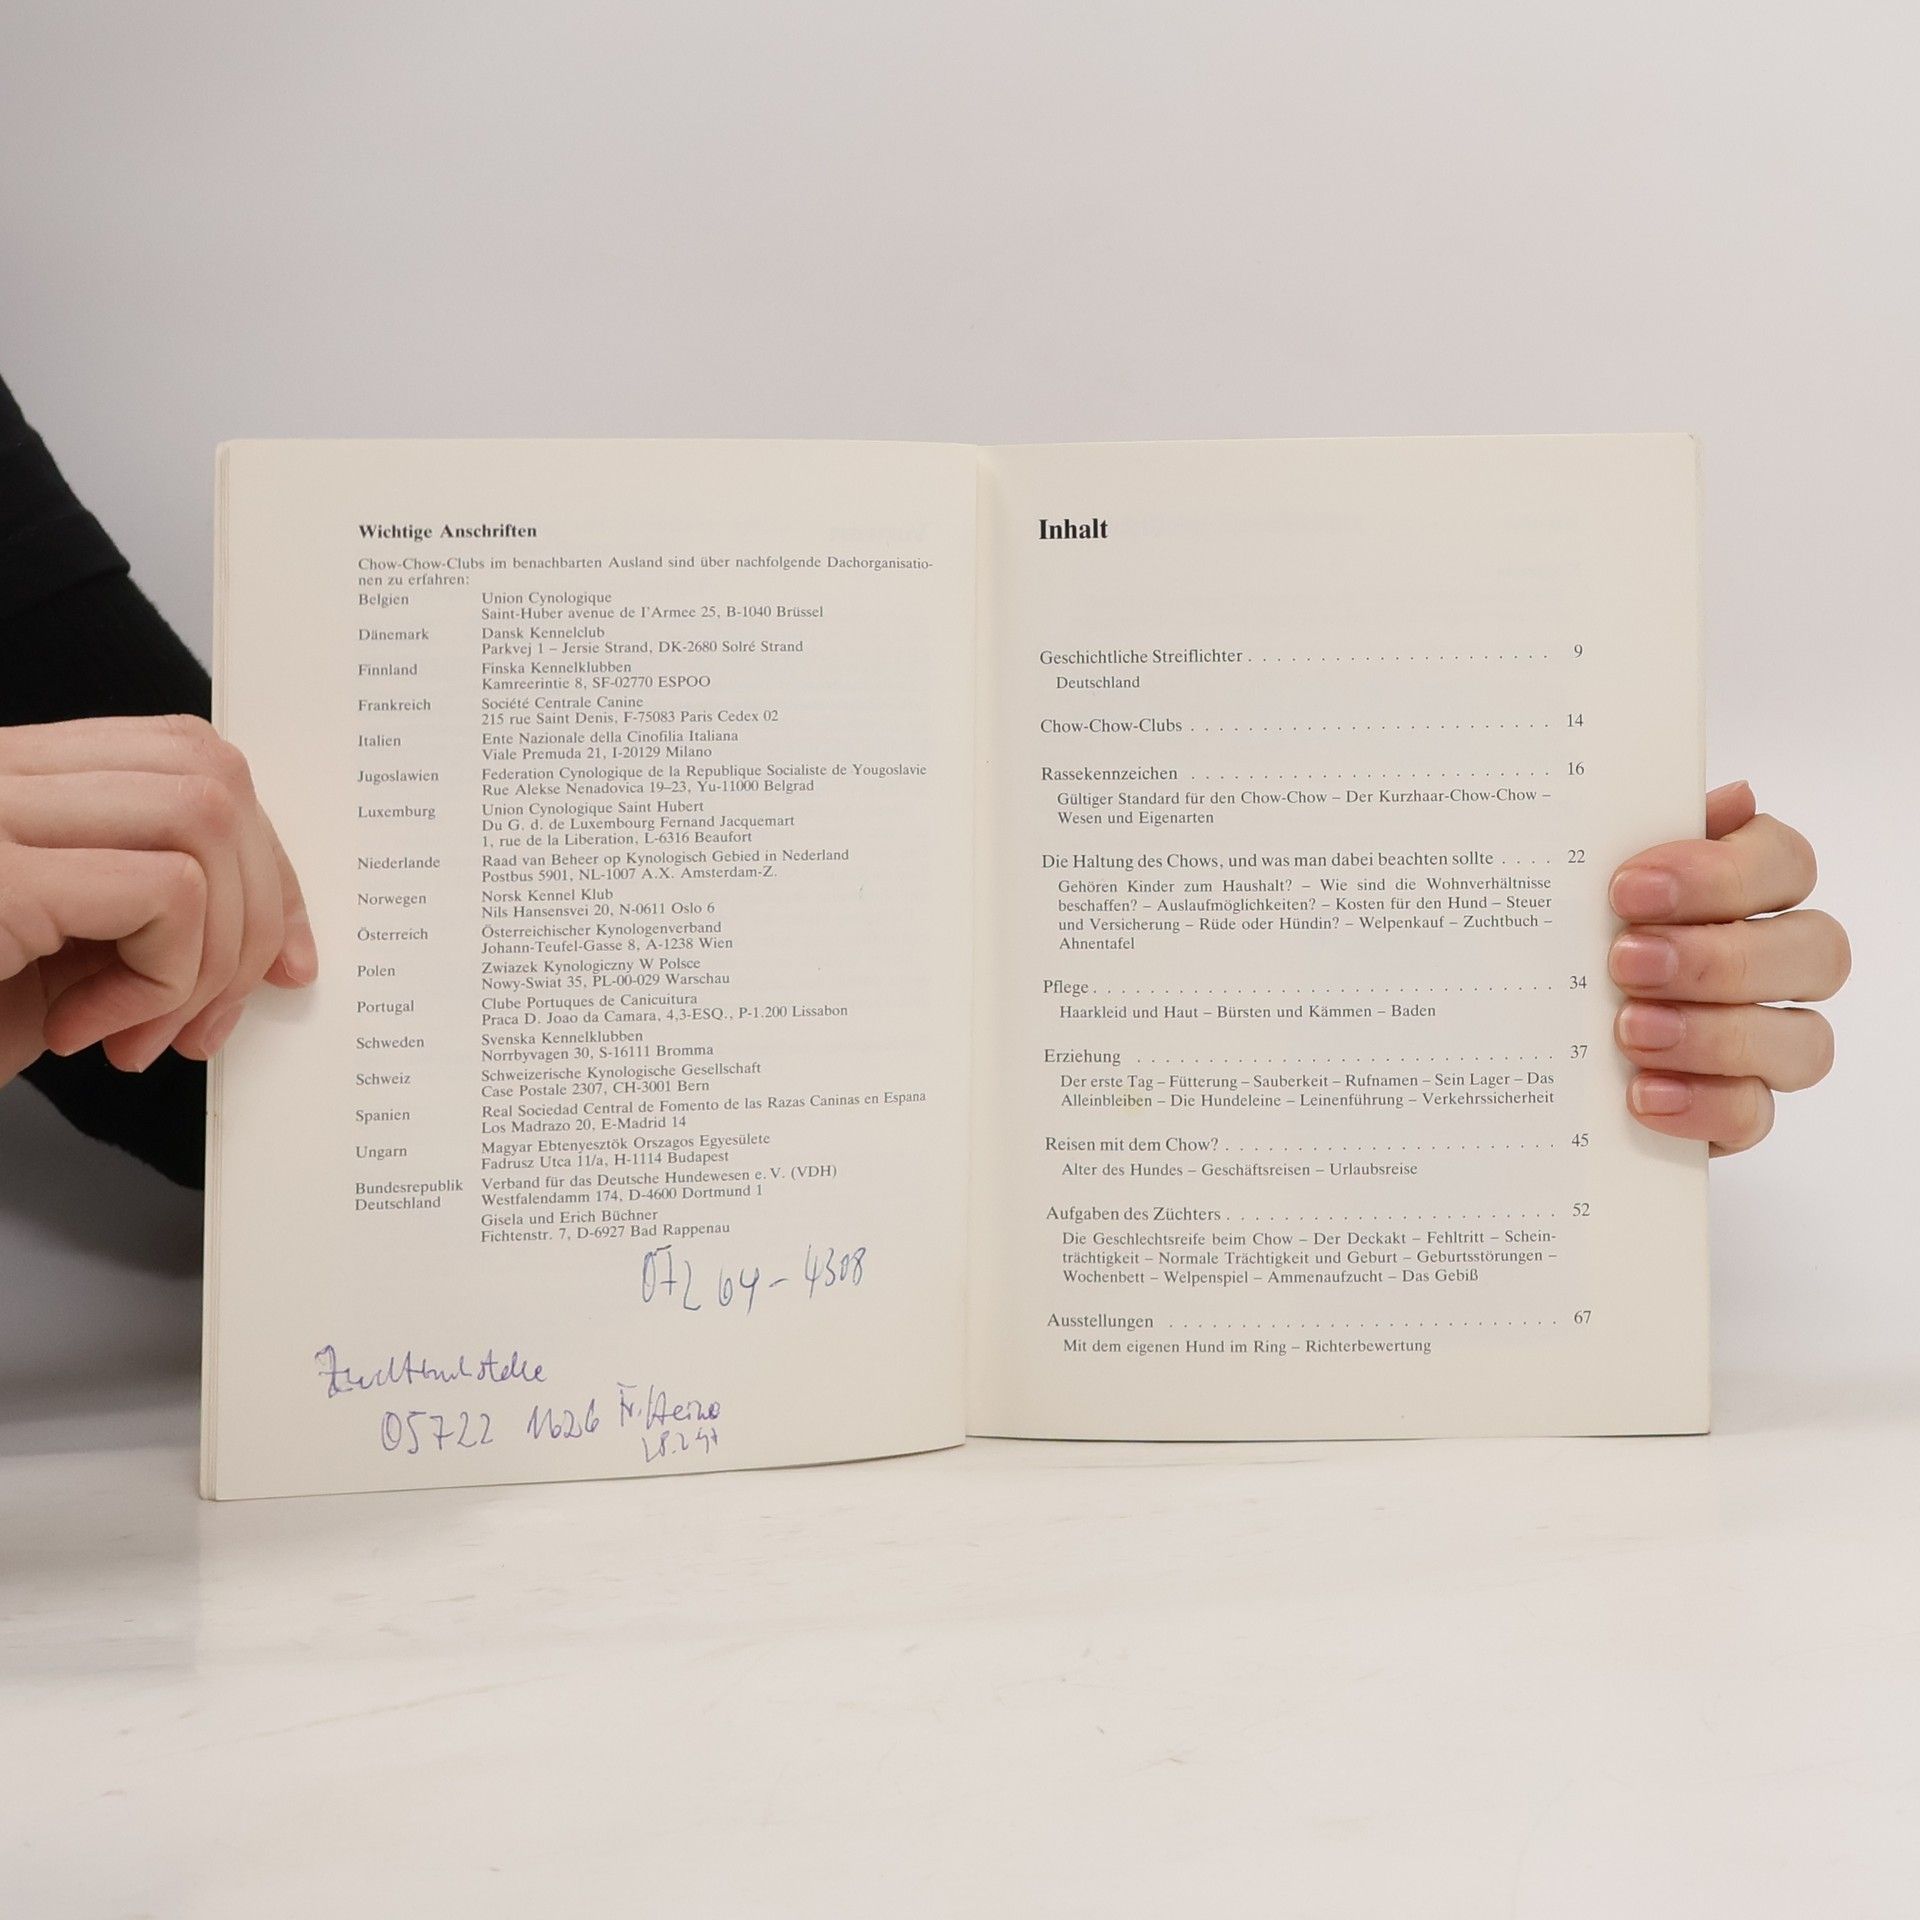 Wichtige Anschriften
Chow-Chow-Clubs im benachbarten Ausland sind über nachfolgende Dachorganisatio-
nen zu erfahren:
Belgien Union Cynologique
Saint-Huber avenue de I'Armee 25, B-1040 Brüssel
Dänemark Dansk Kennelclub
Parkvej 1 – Jersie Strand, DK-2680 Solré Strand
Finnland Finska Kennelklubben
Kamreerintie 8, SF-02770 ESPOO
Frankreich Société Centrale Canine
215 rue Saint Denis, F-75083 Paris Cedex 02
Italien Ente Nazionale della Cinofilia Italiana
Viale Premuda 21, I-20129 Milano
Jugoslawien Federation Cynologique de la Republique Socialiste de Yougoslavie
Rue Alekse Nenadovica 19–23, Yu-11000 Belgrad
Luxemburg Union Cynologique Saint Hubert
Du G. d. de Luxembourg Fernand Jacquemart
1, rue de la Liberation, L-6316 Beaufort
Niederlande Raad van Beheer op Kynologisch Gebied in Nederland
Postbus 5901, NL-1007 A.X. Amsterdam-Z.
Norwegen Norsk Kennel Klub
Nils Hansensvei 20, N-0611 Oslo 6
Österreich Österreichischer Kynologenverband
Johann-Teufel-Gasse 8, A-1238 Wien
Polen Zwiazek Kynologiczny W Polsce
Nowy-Swiat 35, PL-00-029 Warschau
Portugal Clube Portuques de Canicuitura
Praca D. Joao da Camara, 4,3-ESQ., P-1.200 Lissabon
Schweden Svenska Kennelklubben
Norrbyvagen 30, S-16111 Bromma
Schweiz Schweizerische Kynologische Gesellschaft
Case Postale 2307, CH-3001 Bern
Spanien Real Sociedad Central de Fomento de las Razas Caninas en Espana
Los Madrazo 20, E-Madrid 14
Ungarn Magyar Ebtenyesztök Orszagos Egyesülete
Fadrusz Utca 11/a, H-1114 Budapest
Bundesrepublik Verband für das Deutsche Hundewesen e. V. (VDH)
Deutschland Westfalendamm 174, D-4600 Dortmund 1
Gisela und Erich Büchner
Fichtenstr. 7, D-6927 Bad Rappenau
072 64 – 4308
05722 1626 Fr. Heine
Inhalt
Geschichtliche Streiflichter . . . . . . . . . . . . . . . . . . . . . 9
Deutschland
Chow-Chow-Clubs . . . . . . . . . . . . . . . . . . . . . . . . . 14
Rassekennzeichen . . . . . . . . . . . . . . . . . . . . . . . . . 16
Gültiger Standard für den Chow-Chow – Der Kurzhaar-Chow-Chow –
Wesen und Eigenarten
Die Haltung des Chows, und was man dabei beachten sollte . . . . 22
Gehören Kinder zum Haushalt? – Wie sind die Wohnverhältnisse
beschaffen? – Auslaufmöglichkeiten? – Kosten für den Hund – Steuer
und Versicherung – Rüde oder Hündin? – Welpenkauf – Zuchtbuch –
Ahnentafel
Pflege . . . . . . . . . . . . . . . . . . . . . . . . . . . . . . . 34
Haarkleid und Haut – Bürsten und Kämmen – Baden
Erziehung . . . . . . . . . . . . . . . . . . . . . . . . . . . . . 37
Der erste Tag – Fütterung – Sauberkeit – Rufnamen – Sein Lager – Das
Alleinbleiben – Die Hundeleine – Leinenführung – Verkehrssicherheit
Reisen mit dem Chow? . . . . . . . . . . . . . . . . . . . . . . . 45
Alter des Hundes – Geschäftsreisen – Urlaubsreise
Aufgaben des Züchters . . . . . . . . . . . . . . . . . . . . . . . 52
Die Geschlechtsreife beim Chow – Der Deckakt – Fehltritt – Schein-
trächtigkeit – Normale Trächtigkeit und Geburt – Geburtsstörungen –
Wochenbett – Welpenspiel – Ammenaufzucht – Das Gebiß
Ausstellungen . . . . . . . . . . . . . . . . . . . . . . . . . . . 67
Mit dem eigenen Hund im Ring – Richterbewertung